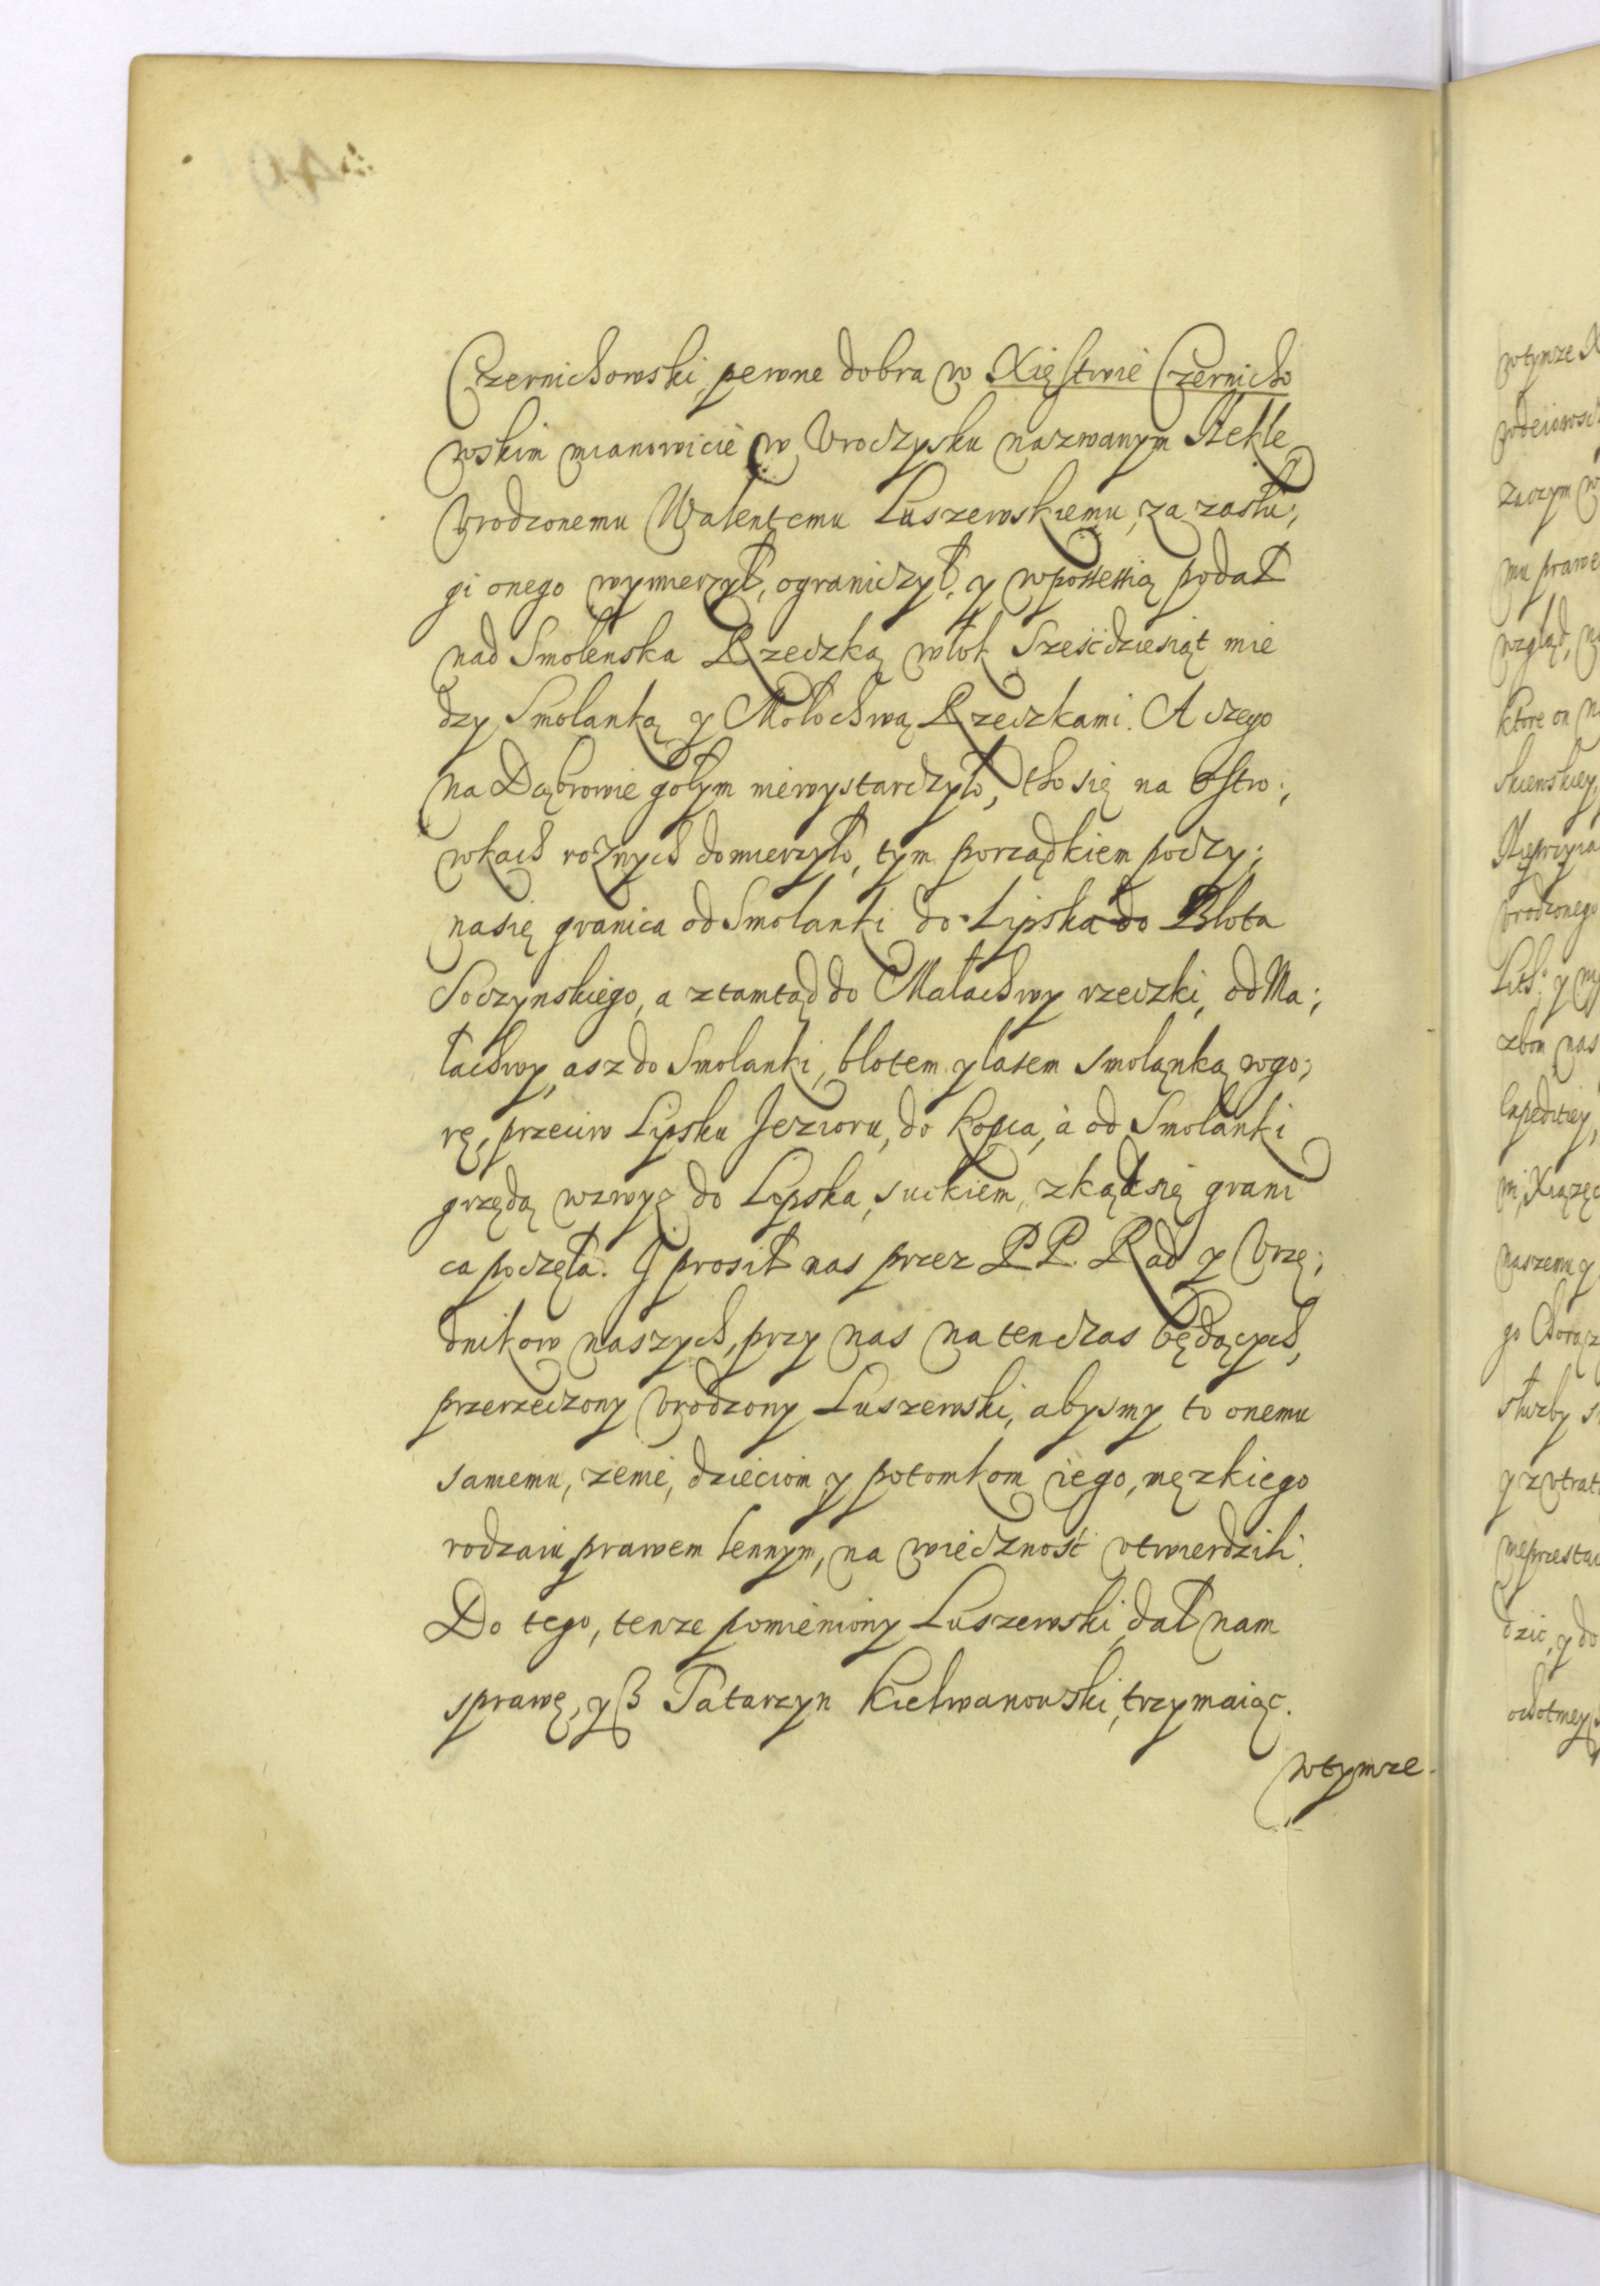 Czernichowski, pewne dobra w Xięstwie Czernicho
wskim mianowicie w Vroczysku nazwanym Stekle
Vrodzonemu Walentemu Luszewskiemu, za zasłu;
gi onego wymierzył, ograniczył, y w possessią podał
nad Smolenska Rzeczką włok Sześćdziesiąt mie
dzy Smolanką y Mołochwą Rzeczkami. A czego
na Dąbrowie gołym niewystarczyło, tho się na ostro;
wkach roznych domierzyło, tym porządkiem poczy;
nasię granica od Smolanki do Lipska do Błota
Soczynskiego, a ztamtąd do Małachwy rzeczki, od Ma;
łachwy, asz do Smolanki, błotem y lasem Smolanką wgo;
rę, przeciw Lipsku Jezioru, do kopca, à od Smolanki
grzędą wzwyz do Lipska, suckiem, zkąd się grani
ca poczęła. Y prosił nas przez PP. Rad y Vrzę;
dnikow naszych, przy nas natenczas będących,
przerzeczony Vrodzony Luszewski, abysmy to onemu
samemu, zenie, dzieciom y potomkom iego, męzkiego
rodzaiu prawem lennym, na wieczność vtwierdzili.
Do tego, tenze pomieniony Luszewski, dał nam
sprawę, yß Tatarzyn Kielwanowski, trzymaiąc.
wtymze
wtymze X
zaczym w
mu prawe
wzgląd, na
ktore on n
skiewskiey,
Vrodzonego
Lith: y ny
zbom nas
naszemu y
go Chorąz
słuzby
y z vtrat
nieprzestai
dzić, y do
ochotney